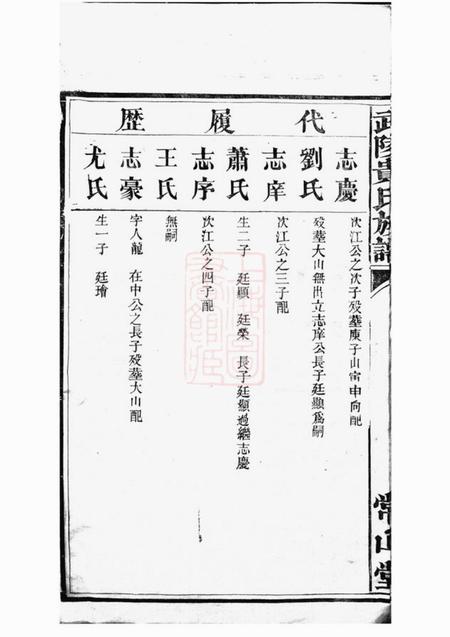 武陵貢氏族譜
常山堂
代履歷
志慶 次江公之次子歿塟庚子山寅申向配
劉氏 歿塟大山無出立志庠公長子廷顯爲嗣
志庠 次江公之三子配
蕭氏 生二子 廷顯 廷榮 長子廷顯過繼志慶
志序 次江公之四子配
王氏 無嗣
志豪 字人龍 在中公之長子歿塟大山配
尤氏 生一子 廷瑜